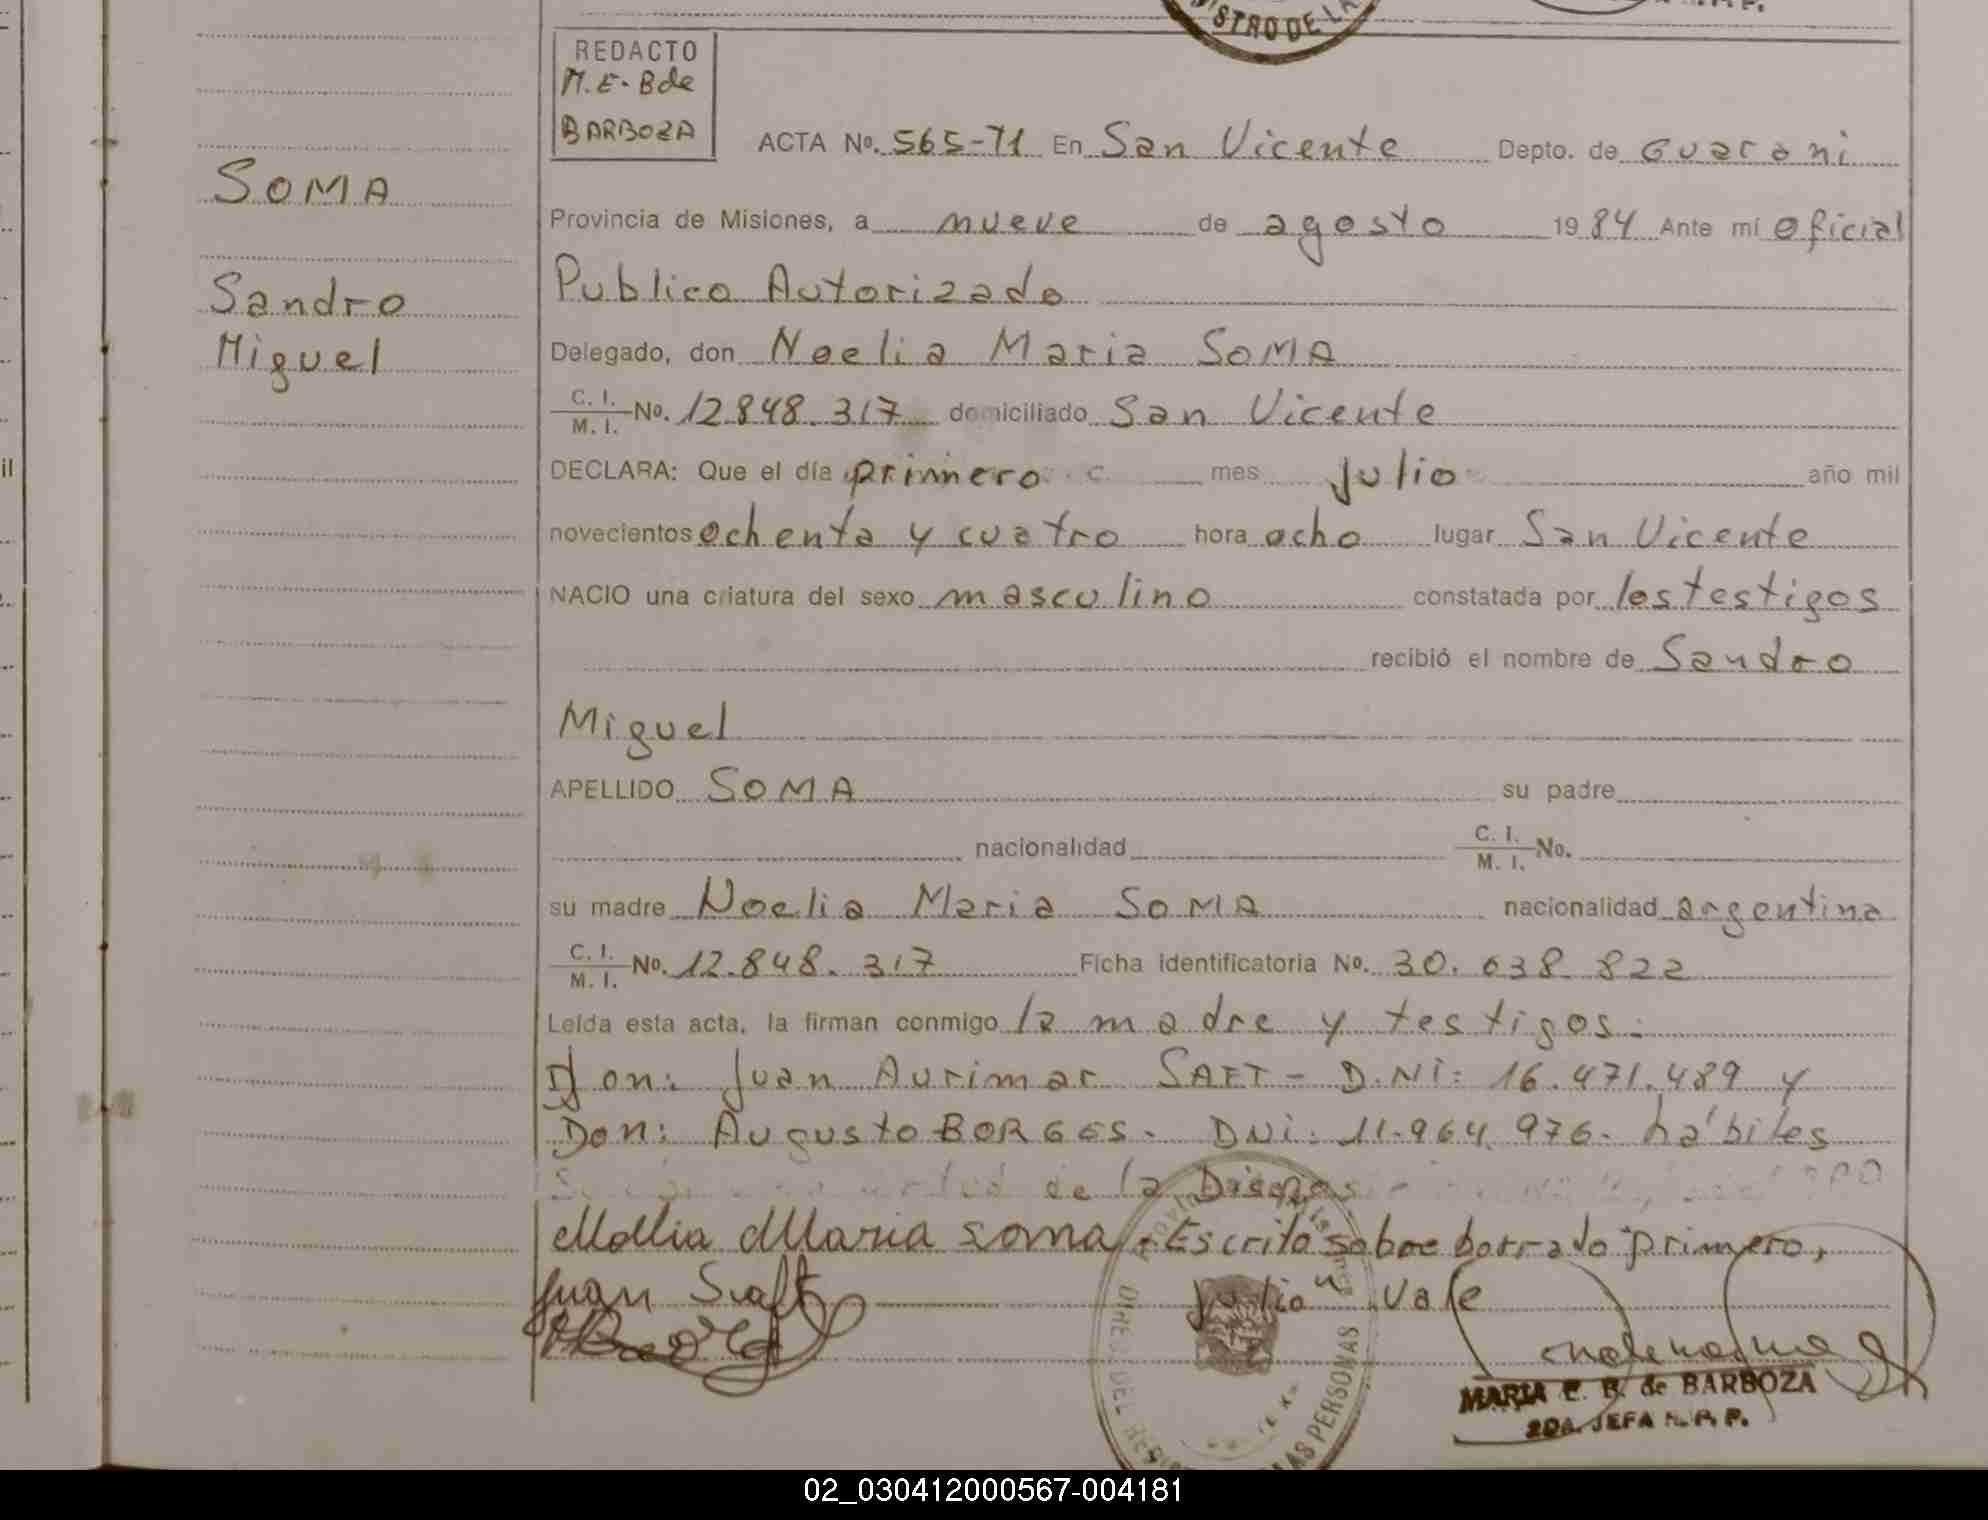 STRO DE LA
REDACTO
M.E. B de
BARBOZA
ACTA No. 565-71 En San Vicente Depto. de Guarani
SOMA
Provincia de Misiones, a nueve de agosto 1984 Ante mí Oficial
Sandro
Publico Autorizado
Miguel
Delegado, don Noelia Maria SOMA
C. I.
M. I. No. 12.848.317 domiciliado San Vicente
DECLARA: Que el día primero mes julio año mil
novecientos ochenta y cuatro hora ocho lugar San Vicente
NACIO una criatura del sexo masculino constatada por los testigos
recibió el nombre de Sandro
Miguel
APELLIDO SOMA su padre
nacionalidad C. I.
M. I. No.
su madre Noelia Maria SOMA nacionalidad argentina
C. I.
M. I. No. 12.848.317 Ficha identificatoria No. 30.638.822
Leída esta acta, la firman conmigo la madre y testigos.
Don: Juan Aurimar SAFT - D.Ni: 16.471.489 y
Don: Augusto BORGES. DNi: 11.964.976. hábiles
de la Dispos
Maria soma. Escrito sobre borrado "primero,
Juan Saft julio" Vale
MARIA E. B. de BARBOZA
2DA. JEFA R. P. P.
DEL PERSONAS
02_030412000567-004181